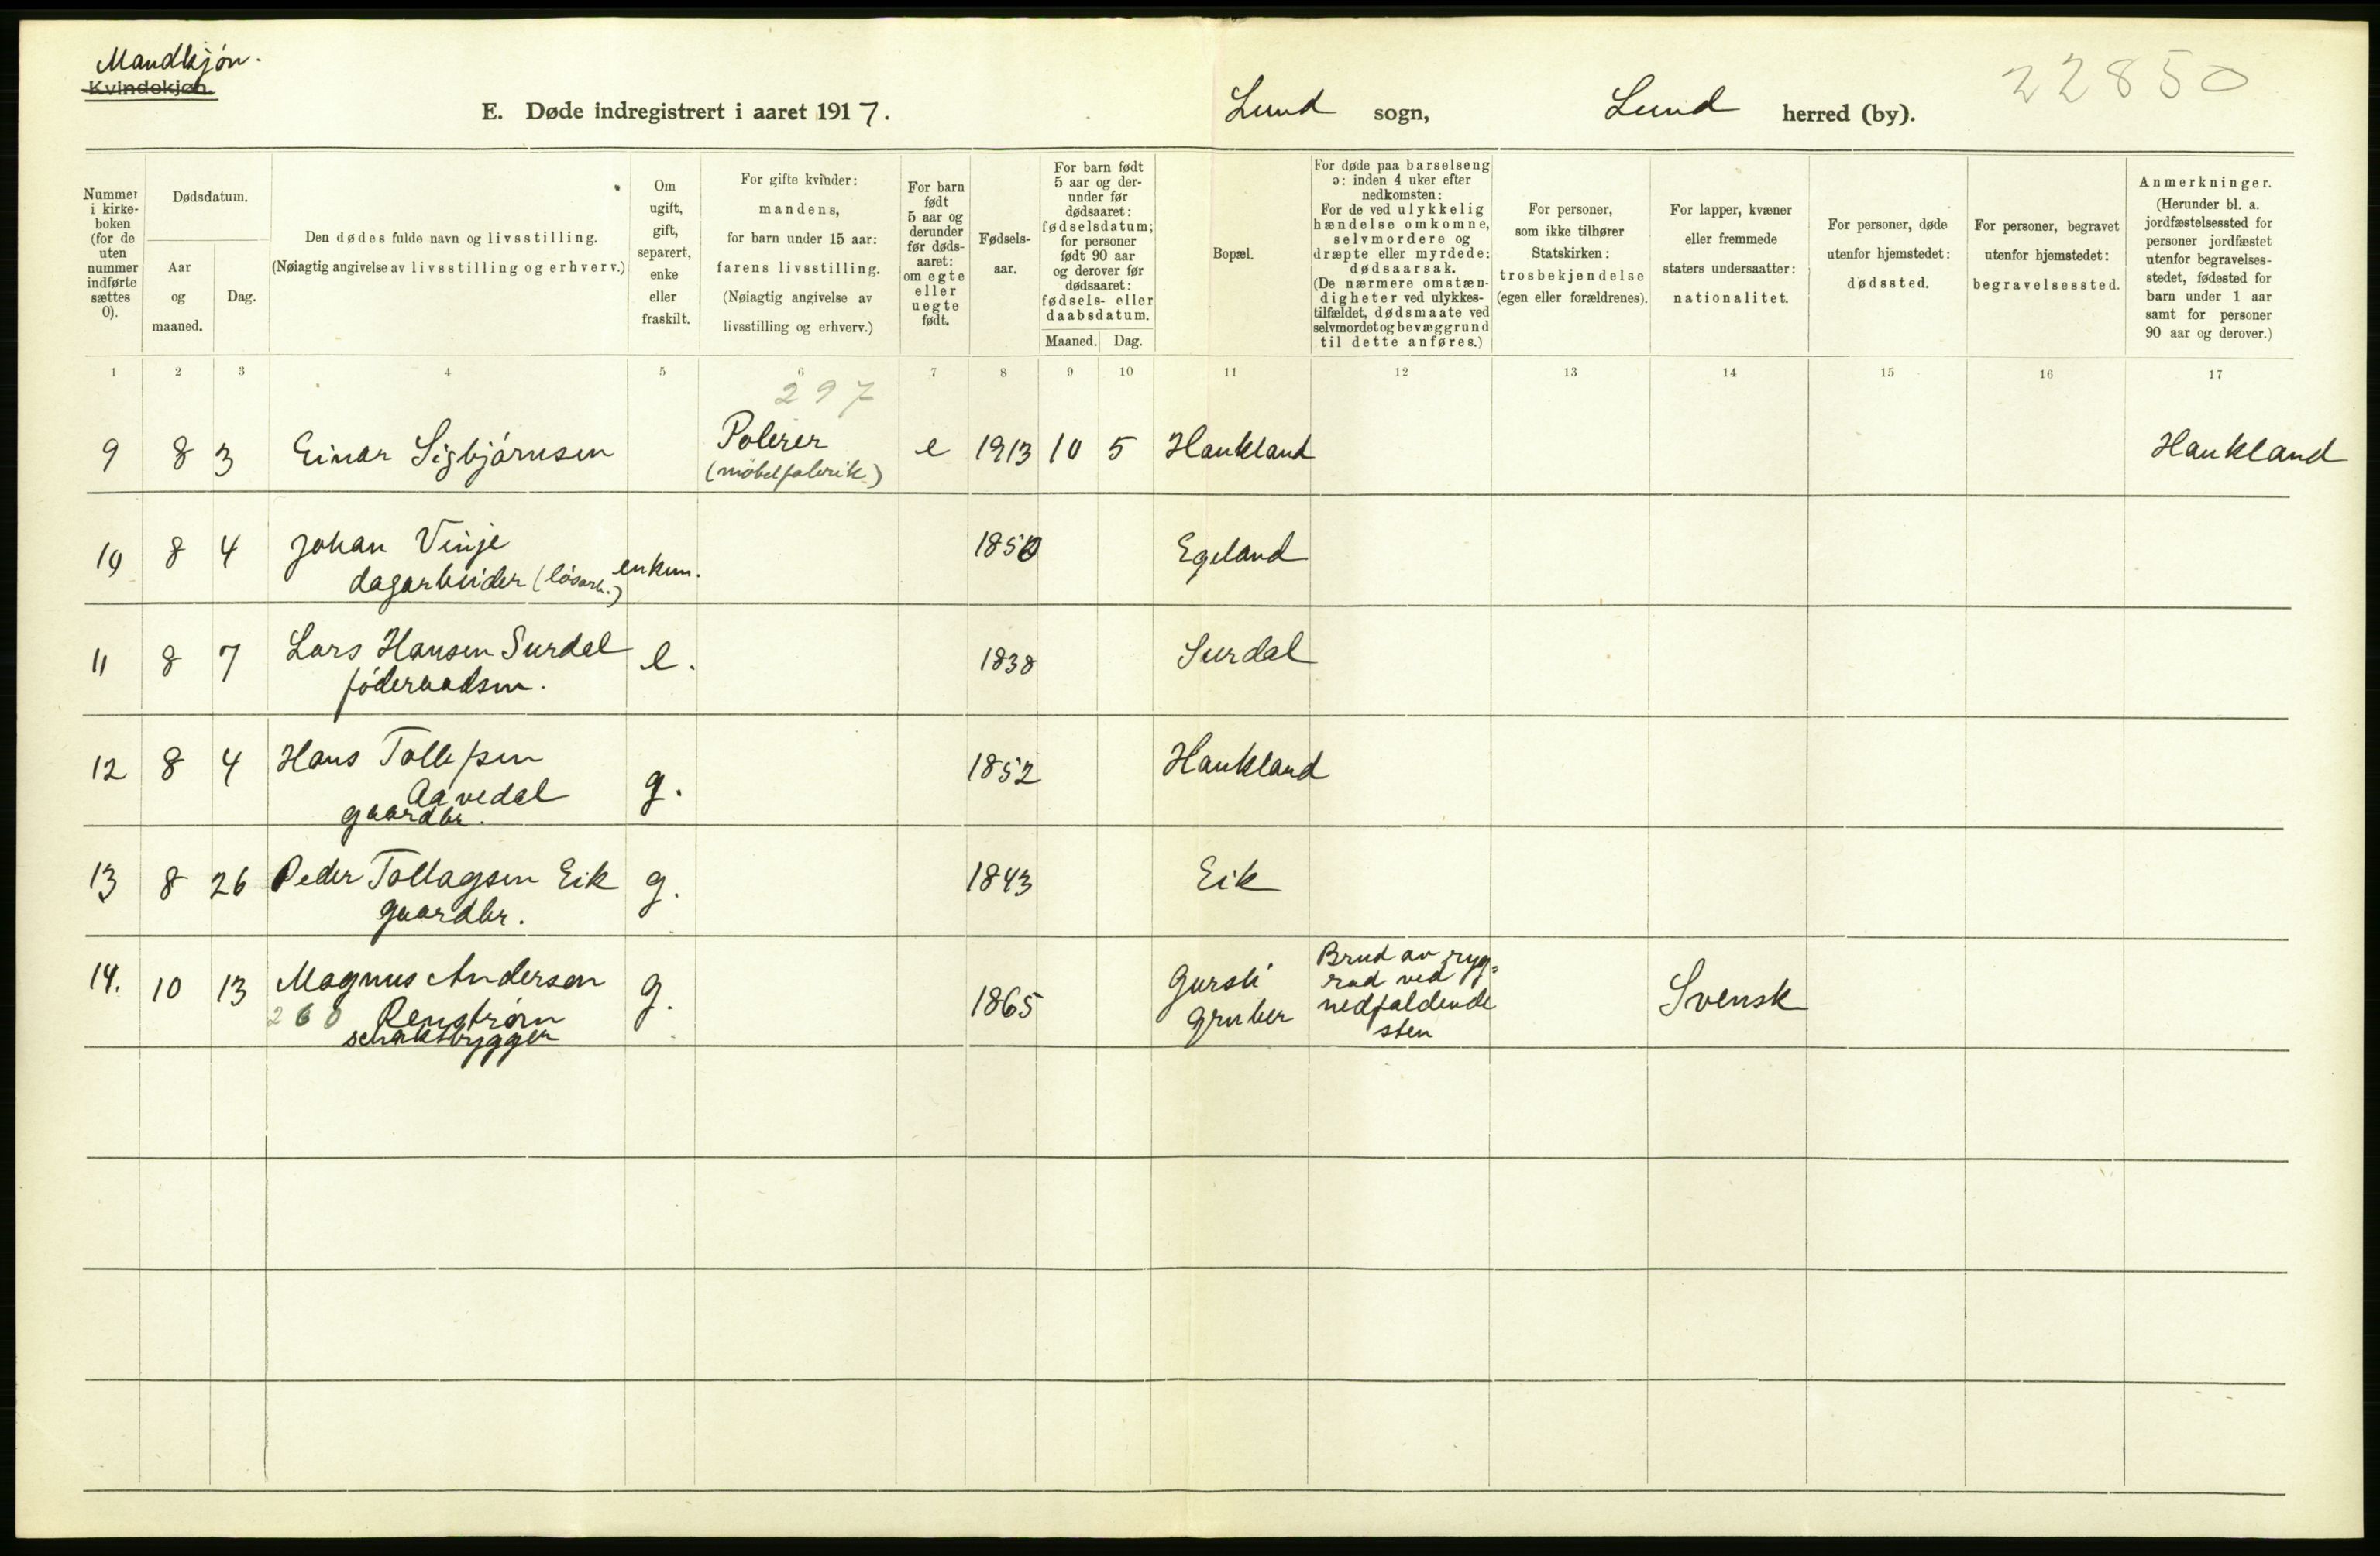 Mandkjøn.
Kvindekjøn.
22850
E. Døde indregistrert i aaret 1917.
Lund sogn, Lund herred (by).
Nummer
i kirke-
boken
(for de
uten
nummer
indførte
sættes
0).
Dødsdatum.
Aar
og
maaned.
Dag.
Den dødes fulde navn og livsstilling.
(Nøiagtig angivelse av livsstilling og erhverv.)
Om
ugift,
gift,
separert,
enke
eller
fraskilt.
For gifte kvinder:
mandens,
for barn under 15 aar:
farens livsstilling.
(Nøiagtig angivelse av
livsstilling og erhverv.)
For barn
født
5 aar og
derunder
før døds-
aaret:
om egte
eller
uegte
født.
Fødsels-
aar.
For barn født
5 aar og der-
under før
dødsaaret:
fødselsdatum;
for personer
født 90 aar
og derover før
dødsaaret:
fødsels- eller
daabsdatum.
Maaned. Dag.
Bopæl.
For døde paa barselseng
ɔ: inden 4 uker efter
nedkomsten:
For de ved ulykkelig
hændelse omkomne,
selvmordere og
dræpte eller myrdede:
dødsaarsak.
(De nærmere omstæn-
digheter ved ulykkes-
tilfældet, dødsmaate ved
selvmordet og bevæggrund
til dette anføres.)
For personer,
som ikke tilhører
Statskirken:
trosbekjendelse
(egen eller forældrenes).
For lapper, kvæner
eller fremmede
staters undersaatter:
nationalitet.
For personer, døde
utenfor hjemstedet:
dødssted.
For personer, begravet
utenfor hjemstedet:
begravelsessted.
Anmerkninger.
(Herunder bl. a.
jordfæstelsessted for
personer jordfæstet
utenfor begravelses-
stedet, fødested for
barn under 1 aar
samt for personer
90 aar og derover.)
1 2 3 4 5 6 7 8 9 10 11 12 13 14 15 16 17
297
9 8 3 Einar Sigbjørnsen Polerer e 1913 10 5 Haukland Haukland
(møbelfabrik.)
10 8 4 Johan Vinje enkem. 1850 Egeland
dagarbeider (løsarb.)
11 8 7 Lars Hansen Surdal e. 1838 Surdal
føderaadsm.
12 8 4 Hans Tollefsen g. 1852 Haukland
Aavedal
gaardbr.
13 8 26 Peder Tollagsen Eik g. 1843 Eik
gaardbr.
14. 10 13 Magnus Anderson g. 1865 Gursli Brud av ryg= Svensk
260 Renstrøm gruber rad ved
schaktbygger nedfaldende
sten